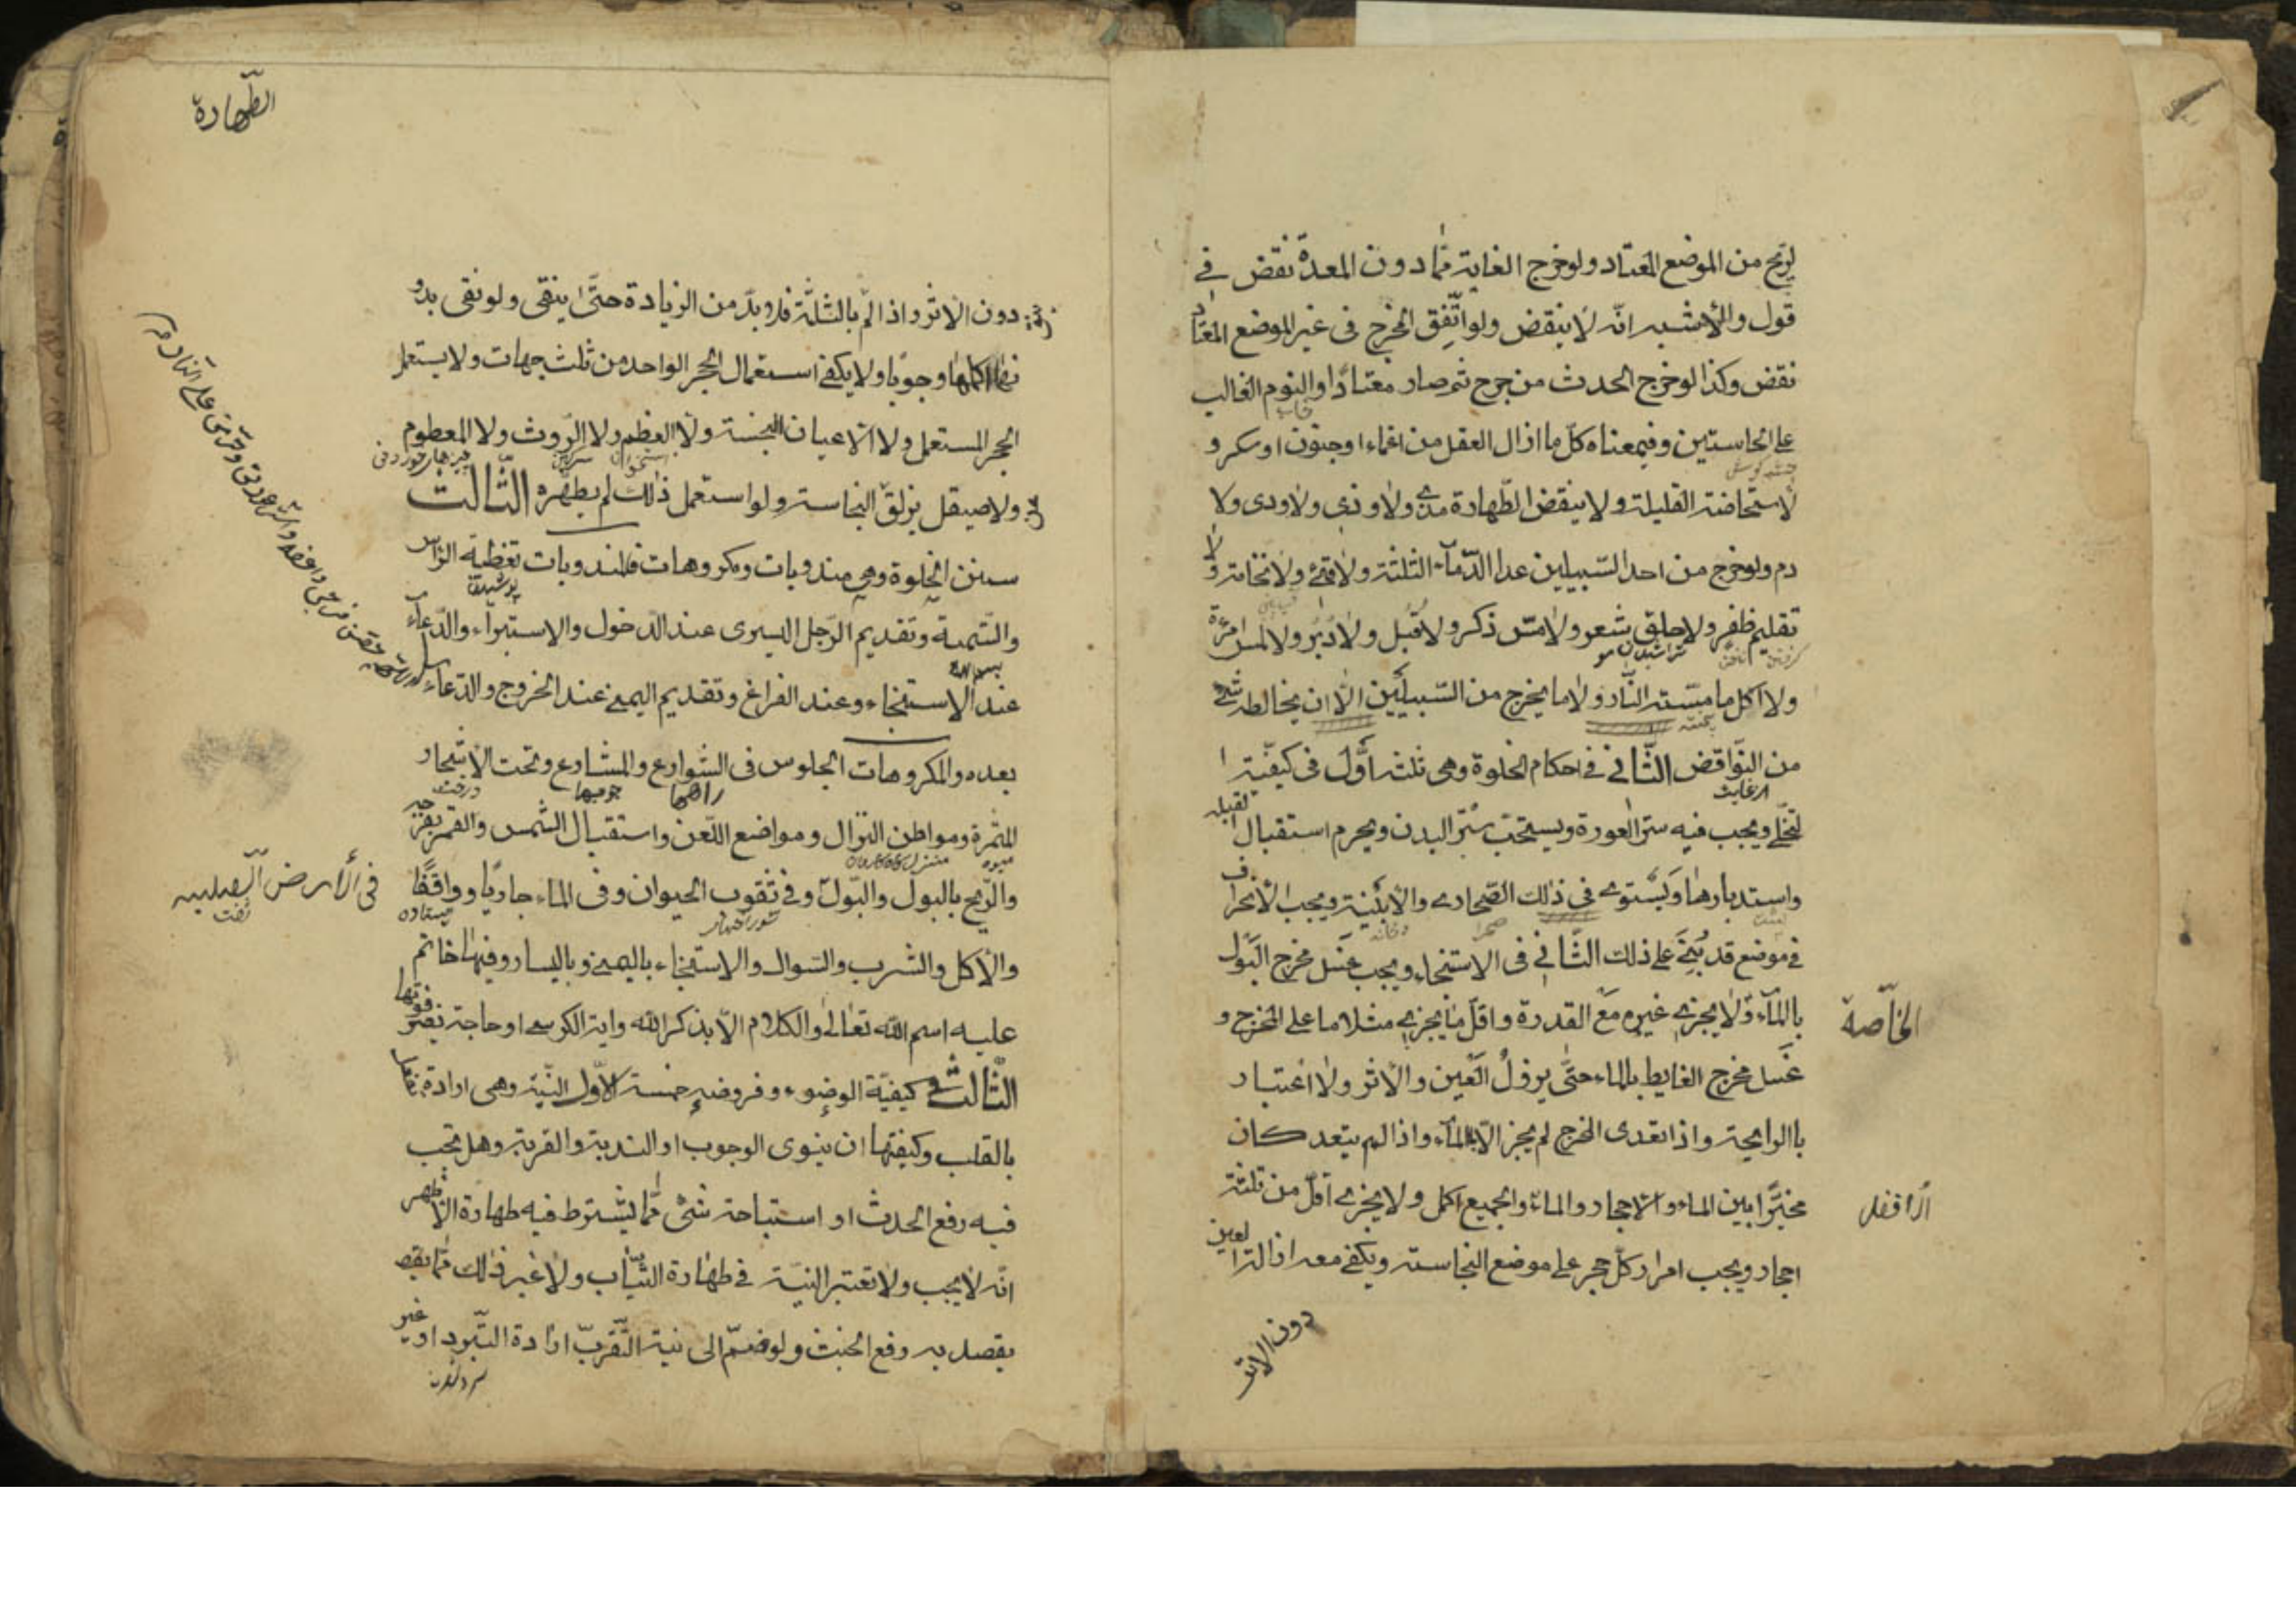 لريح من الموضع المعتاد ولو خرج الغايته مما دون المعدة نقض في
قول والأشبه انّه لا ينقض ولو اتّفق المخرج فى غير الموضع المعتاد
نقض وكذا لو خرج الحدث من جرح ثم صار معتادًا والنوم الغالب
على الحاستين وفيمعناه كلّ ما ازال العقل من اغماء او جنون او سكر و
لاستحاضة القليلة ولا ينقض الطّهارة مذي ولا وذي ولا ودى ولا
دم ولو خرج من احد السّبيلين عدا الدّماء الثلثة ولا قئ ولا نخامة ولا
تقليم ظفر ولا حلق شعر ولا مسّ ذكر ولا قُبُل ولا دُبُر ولا لمس امرءة
تراشيدن مو
ولا اكل ما مسّته النّار ولا ما يخرج من السّبيلين الّا ان يخالطه شئ
من النّواقض الثّانى فى احكام الخلوة وهى ثلثه اوّل فى كيفيّة ا
لتخلّي ويجب فيه ستر العورة ويستحبّ ستر البدن ويحرم استقبال القبله
واستدبارها ويستوى فى ذلك الصّحارى والأبنية ويجب الأنحراف
صحرا
خانه
فى موضع قد بُنِيَ على ذلك الثّاني فى الاستنجاء ويجب غسل مخرج البول
بالمآء ولا يجزي غيره مع القدرة واقلّ ما يجزي مثلا ما على المخرج و
الخاّصة
غَسل مخرج الغايط بالماء حتّى يزولُ العَين والأثر ولا اعتبار
باالرايحة واذا تعدى المخرج لم يجز الّا بالمآء واذا لم يتعد كان
مخيّرًا بين الماء والاحجار والماء والجميع اكمل ولا يجزى اقلّ من ثلثة
احجار ويجب امرار كلّ حجر على موضع النجاسته ويكفى معه ازالة العين
دون الاثر
الطّهارة
دون الاثر واذا لم بالثلثة فلا بدّ من الزيادة حتّى ينقى ولو نقى بدو
نها اكملها وجوبًا ولا يكفى استعمال الحجر الواحد من ثلث جهات ولا يستعمل
الحجر المستعمل ولا الأعيان النجسة ولا العظم ولا الرّوث ولا المطعوم
استخوان
سرگين
چيزهاى خوردنى
ولا صيقل يزلق النجاسة ولو استعمل ذلك لم يطهّره الثّالث
سنن الخلوة وهي مندوبات ومكروهات فالمندوبات تغطية الرّاس
پوشيدن
والتّسمية وتقديم الرّجل اليسرى عند الدّخول والاستبرآء والدّعاء
بسم الله
عند الاستنجاء وعند الفراغ وتقديم اليمنى عند الخروج والدّعاء
بعده والمكروهات الجلوس فى الشّوارع والمشارع وتحت الاشجار
راهها
جويها
درخت
المثمرة ومواطن النّزال ومواضع اللّعن واستقبال الشّمس والقمر بفرجه
ميوه
منزل گاه كاروان
والرّيح بالبول والبول وفى ثقوب الحيوان وفى الماء جاريًا وواقفًا
فى الأرض الصّلبيه
والأكل والشرب والسّواك والاستنجاء باليمين وباليسار وفيها خاتم
عليه اسم اللّه تعالى والكلام الّا بذكر اللّه واية الكرسي او حاجة يضر فوتها
الثّالث فى كيفيّة الوضوء وفروضه خمسة الاوّل النّية وهى ارادة تفعل
بالقلب وكيفيّتها ان ينوى الوجوب او الندبة والقربة وهل تجب
فيه رفع الحدث او استباحة شئ مّما يشترط فيه طهارة الأظهر
انّه لا يجب ولا تعتبر النيّة فى طهارة الثيّاب ولا غير ذلك مّما يقصد
يقصد به رفع الخبث ولو ضمّ الى نية التّقرّب ارادة التّبرد او غير